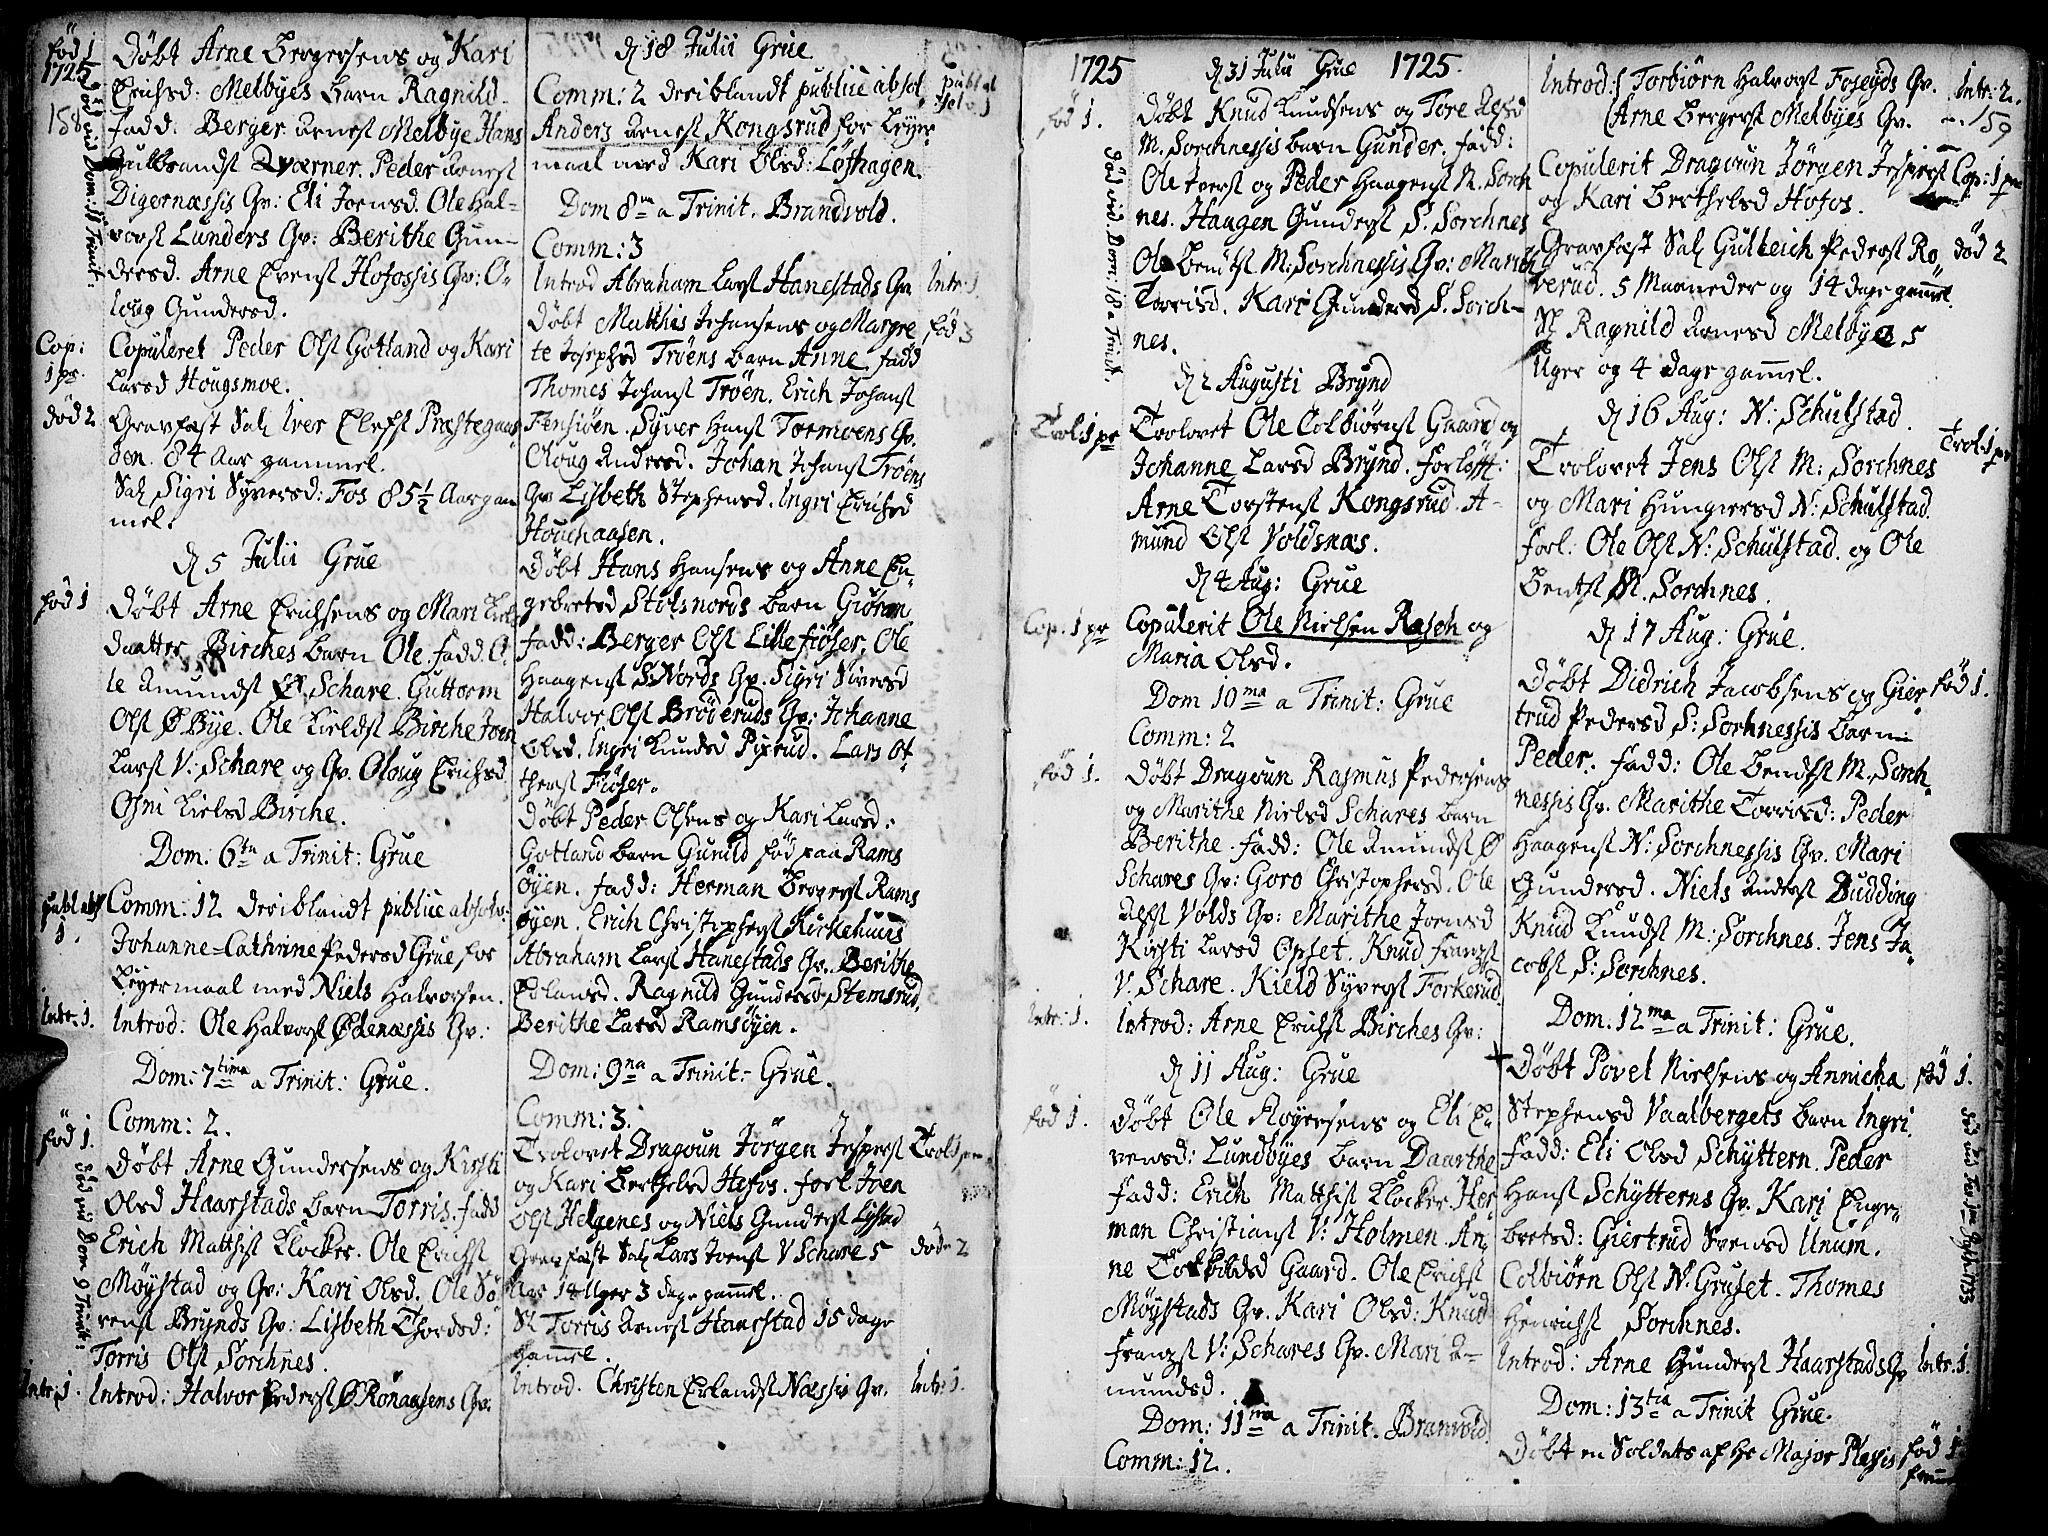 fød 1
1725
158
Døbt Arne Bergersens og Kari
Erichsd: Melbyes barn Ragnild
fadd: Berger Arnesf Melbye Hans
Gulbrandsf Qværner. Peder Arnesf
Digernæssis Qv: Eli Joensd. Ole Hal=
vorsf Lunders Qv: Berithe Gun=
dersd. Arne Evensf Hofossis Qv: O=
loug Gundersd.
Cop:
1 pr.
Copuleret Peder Olsf Gotland og Kari
Larsd Hougsmoe.
død 2
Gravfæst Sal Iver Elefsf Præstegaar
den. 84 Aar gammel.
Sal Sigri Syversd: Fos 85½ Aar gam
mel.
d 5 Julii Grue
fød 1
Døbt Arne Erichsens og Mari
daatter Birches barn Ole. fadd. O=
le Amundsf Ø. Schare. Guttorm
Olsf Ø Bye. Ole Kieldsf Birche Joen
Larsf V: Schare og Qv. Oloug Erichsd
Osni Kielsd Birche.
Dom: 6ta a Trinit: Grue
publ abs
1.
Comm: 12 deriblandt publice absolv:
Johanne=Cathrine Pedersd Grue for
Leyermaal med Niels Halvorsen.
Intr: 1.
Introd: Ole Halvorsf Ødenæssis Qv:
Dom: 7tima a Trinit: Grue.
Comm: 2.
fød 1.
Døbt Arne Gundersens og Kirsti
Olsd Haarstads barn Torris. fadd
Erich Matthisf Klocker. Ole Erichsf
Møystad og Qv: Kari Olsd. Ole Sø
rensf Brynds Qv: Lisbeth Thordsd:
Torris Olsf Sorchnes.
død vid Dom 9 Trinit:
Intr: 1.
Introd: Halvor Pedersf Ø Rønaasens Qv:
d 18 Julii Grue
Comm: 2 deriblandt publice absol
publ ab
solv: 1
Anders Arnesf Kongsrud for Leyer
maal med Kari Olsd: Løfhagen.
Dom 8va a Trinit. Brandvold.
Comm: 3
Introd Abraham Larsf Hanestads Qv
Intr: 1.
Døbt Matthis Johansens og Margre
fød 3
te Josephsd Trøens barn Anne. fadd
Thomes Johansf Trøen. Erich Johansf
Fensiøen. Syver Hansf Tormoens Qv.
Oloug Andersd. Johan Johansf Trøens
Qv Lisbeth Stephensd. Ingri Erichsd
Houchaasen.
Døbt Hans Hansens og Anne En=
gebretsd Stolsnords barn Giøran
fadd: Berger Olsf Lillefiøser. Ole
Haagensf S: Nords Qv. Sigri Siversd
Halvor Olsf Brøderuds Qv: Johanne
Olsd. Ingri Knudsd Pixrud. Lars Ot
thersf Fiøser.
Døbt Peder Olsens og Kari Larsd:
Gotland barn Gunild fød paa Rams
øyen. fadd: Herman Bergersf Rams
øyen. Erich Christophersf Kirkehuus
Abraham Larsf Hanestads Qv. Berithe
Erlandsd. Ragnild Gundersd Stemsrud.
Berithe Larsd Ramsøyen.
Dom: 9na a Trinit: Grue.
Comm: 3.
Trolovet Dragoun Jørgen Jespersf
Trol 1 pr
og Kari Berthelsd Hofos. forl Joen
Olsf Helgenes og Niels Gundersf Lystad
Gravfæst Sal Lars Joensf V Schare 5
død 2
Aar 14 Uger 3 dage gammel.
Sl Torris Arnesf Haarstad 15 dage
gammel.
Introd. Christen Erlandsf Næssis Qv.
Intr: 1.
1725
d 31 Julii Grue 1725.
fød 1.
Døbt Knud Knudsens og Tore Alfsd
M. Sorchnessis barn Gunder. fadd:
Ole Iversf og Peder Haagensf N. Sorch
nes. Haagen Gundersf S. Sorchnes
Ole Bentsf M: Sorchnessis Qv: Marith
Torrisd. Kari Gundersd S. Sorch=
nes.
død vid. Dom: 18 a Trinit.
d 2 Augusti Brynd
Trol: 1 pr
Trolovet Ole Colbiørnsf Gaard og
Johanne Larsd Brynd. forlofft:
Arne Torstensf Kongsrud. A=
mund Olsf Voldsnæs.
d 4 Aug: Grue
Cop. 1 pr
Copulerit Ole Nielsen Rasch og
Maria Olsd.
Dom 10ma a Trinit: Grue
Comm: 2
fød 1.
Døbt Dragoun Rasmus Pedersens
og Marithe Nielsd Schares barn
Berithe. fadd: Ole Amundsf Ø
Schares Qv: Goro Christophersd. Ole
Alfsf Volds Qv: Marithe Joensd
Kirsti Larsd Opset. Knud Franzsf
V. Schare. Kield Syversf Forkerud.
Intr: 1.
Introd: Arne Erichsf Birches Qv:
d 11 Aug: Grue
fød 1.
Døbt Ole Floyersens og Eli E
vensd: Lundbyes barn Daarthe
Fadd: Erich Matthisf Klocker. Her
man Christiansf V: Holmen. An
ne Torkildsd Gaard. Ole Erichsf
Møystads Qv. Kari Olsd: Knud
Franzsf V: Schares Qv. Mari A=
mundsd.
Dom: 11ma a Trinit. Branvold.
Comm: 12.
Introd: Torbiørn Halvorsf Foseyds Qv.
Intr: 2.
159
Arne Bergersf Melbyes Qv.
Copulerit Dragoun Jørgen Jespersf
Cop: 1 pr
og Kari Berthelsd Hofos.
Gravfæst Sal Gulleich Pedersf Ro
død 2
verud. 5 Maaneder og 14 dage gammel.
Sl Ragnild Arnesd Melbye 5
Uger og 4 dage gammel.
d 16 Aug: N: Schulstad.
Trol: 1 pr
Trolovet Jens Olsf M: Sorchnes
og Mari Hungiersd N: Schulstad.
forl: Ole Olsf N: Schulstad. og Ole
Bentsf M. Sorchnes.
d 17 Aug: Grue.
Døbt Didrich Jacobsens og Gier
fød 1.
trud Pedersd S: Sorchnessis barn
Peder. fadd: Ole Bendtsf M. Sorch
nessis Qv. Marithe Torrisd: Peder
Haagensf N: Sorchnessis Qv. Mari
Gundersd. Niels Andersf Budding
Knud Knudsf M: Sorchnes. Jens Ja
cobsf S: Sorchnes.
Dom: 12ma a Trinit: Grue.
Døbt Povel Nielsens og Annicha
fød 1.
Stephensd Vaalbergets barn Ingri.
Fadd: Eli Olsd Schyttern. Peder
Hansf Schytterns Qv. Kari Enge=
bretsd: Giertrud Svensd Unum.
Colbiørn Olsf N: Gruset. Thomes
Henrichsf Sorchnes.
Introd: Arne Gundersf Haarstads Qv
Intr: 1.
Dom: 13tia a Trinit Grue.
Døbt en Soldats af Hr Major Plessis
fød 1